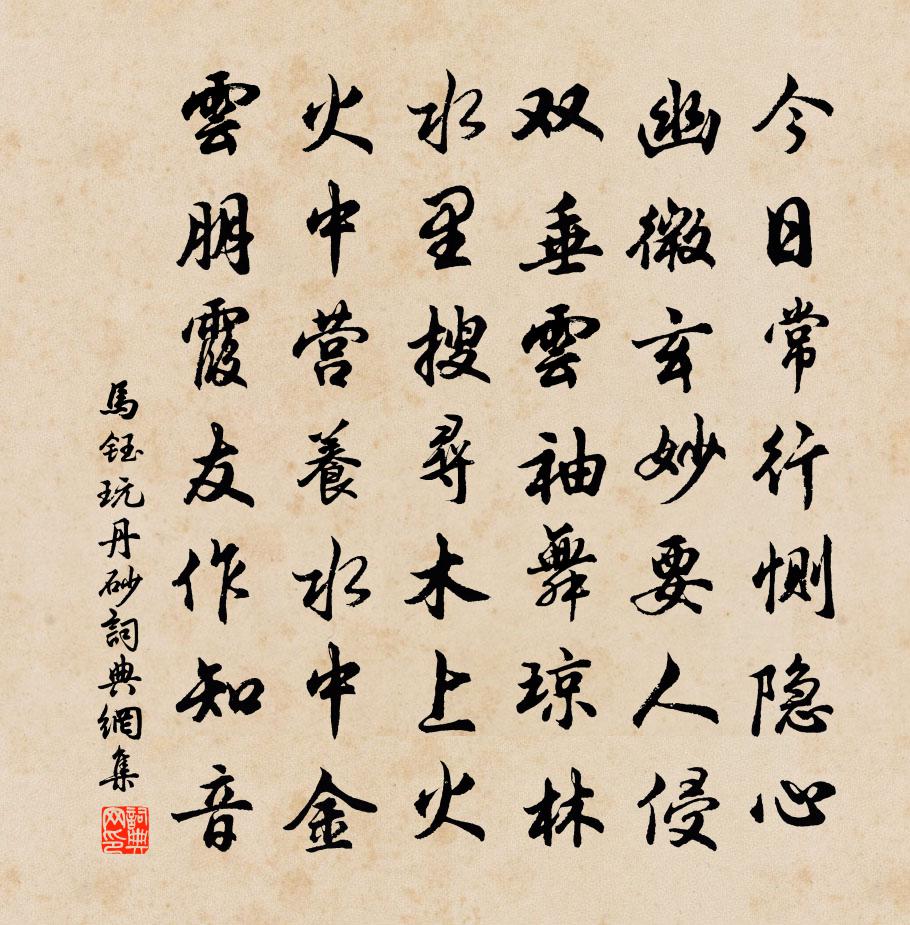 今日常行惻隐心
幽微玄妙要人侵
双垂雲袖舞琼林
水里搜尋木上火
火中营養水中金
雲朋霞友作知音
馬钰玩丹砂詞典網集
詞典网印